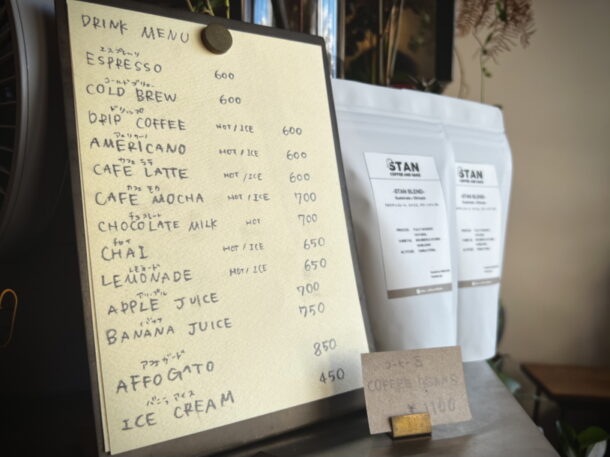 DRINK MENU
エスプレッソ
ESPRESSO 600
コールドブリュー
COLD BREW 600
ドリップ
DRIP COFFEE HOT/ICE 600
アメリカーノ
AMERICANO HOT/ICE 600
カフェ ラテ
CAFE LATTE HOT/ICE 600
カフェ モカ
CAFE MOCHA HOT/ICE 700
チョコレート
CHOCOLATE MILK HOT 700
チャイ
CHAI HOT/ICE 650
レモネード
LEMONADE HOT/ICE 650
アップル
APPLE JUICE 700
バナナ
BANANA JUICE 750
アフォガード
AFFOGATO 850
バニラ アイス
ICE CREAM 450
STAN
COFFEE AND BAKE
-STAN BLEND-
STAN
-STAN BLEND-
コーヒー豆
COFFEE BEANS